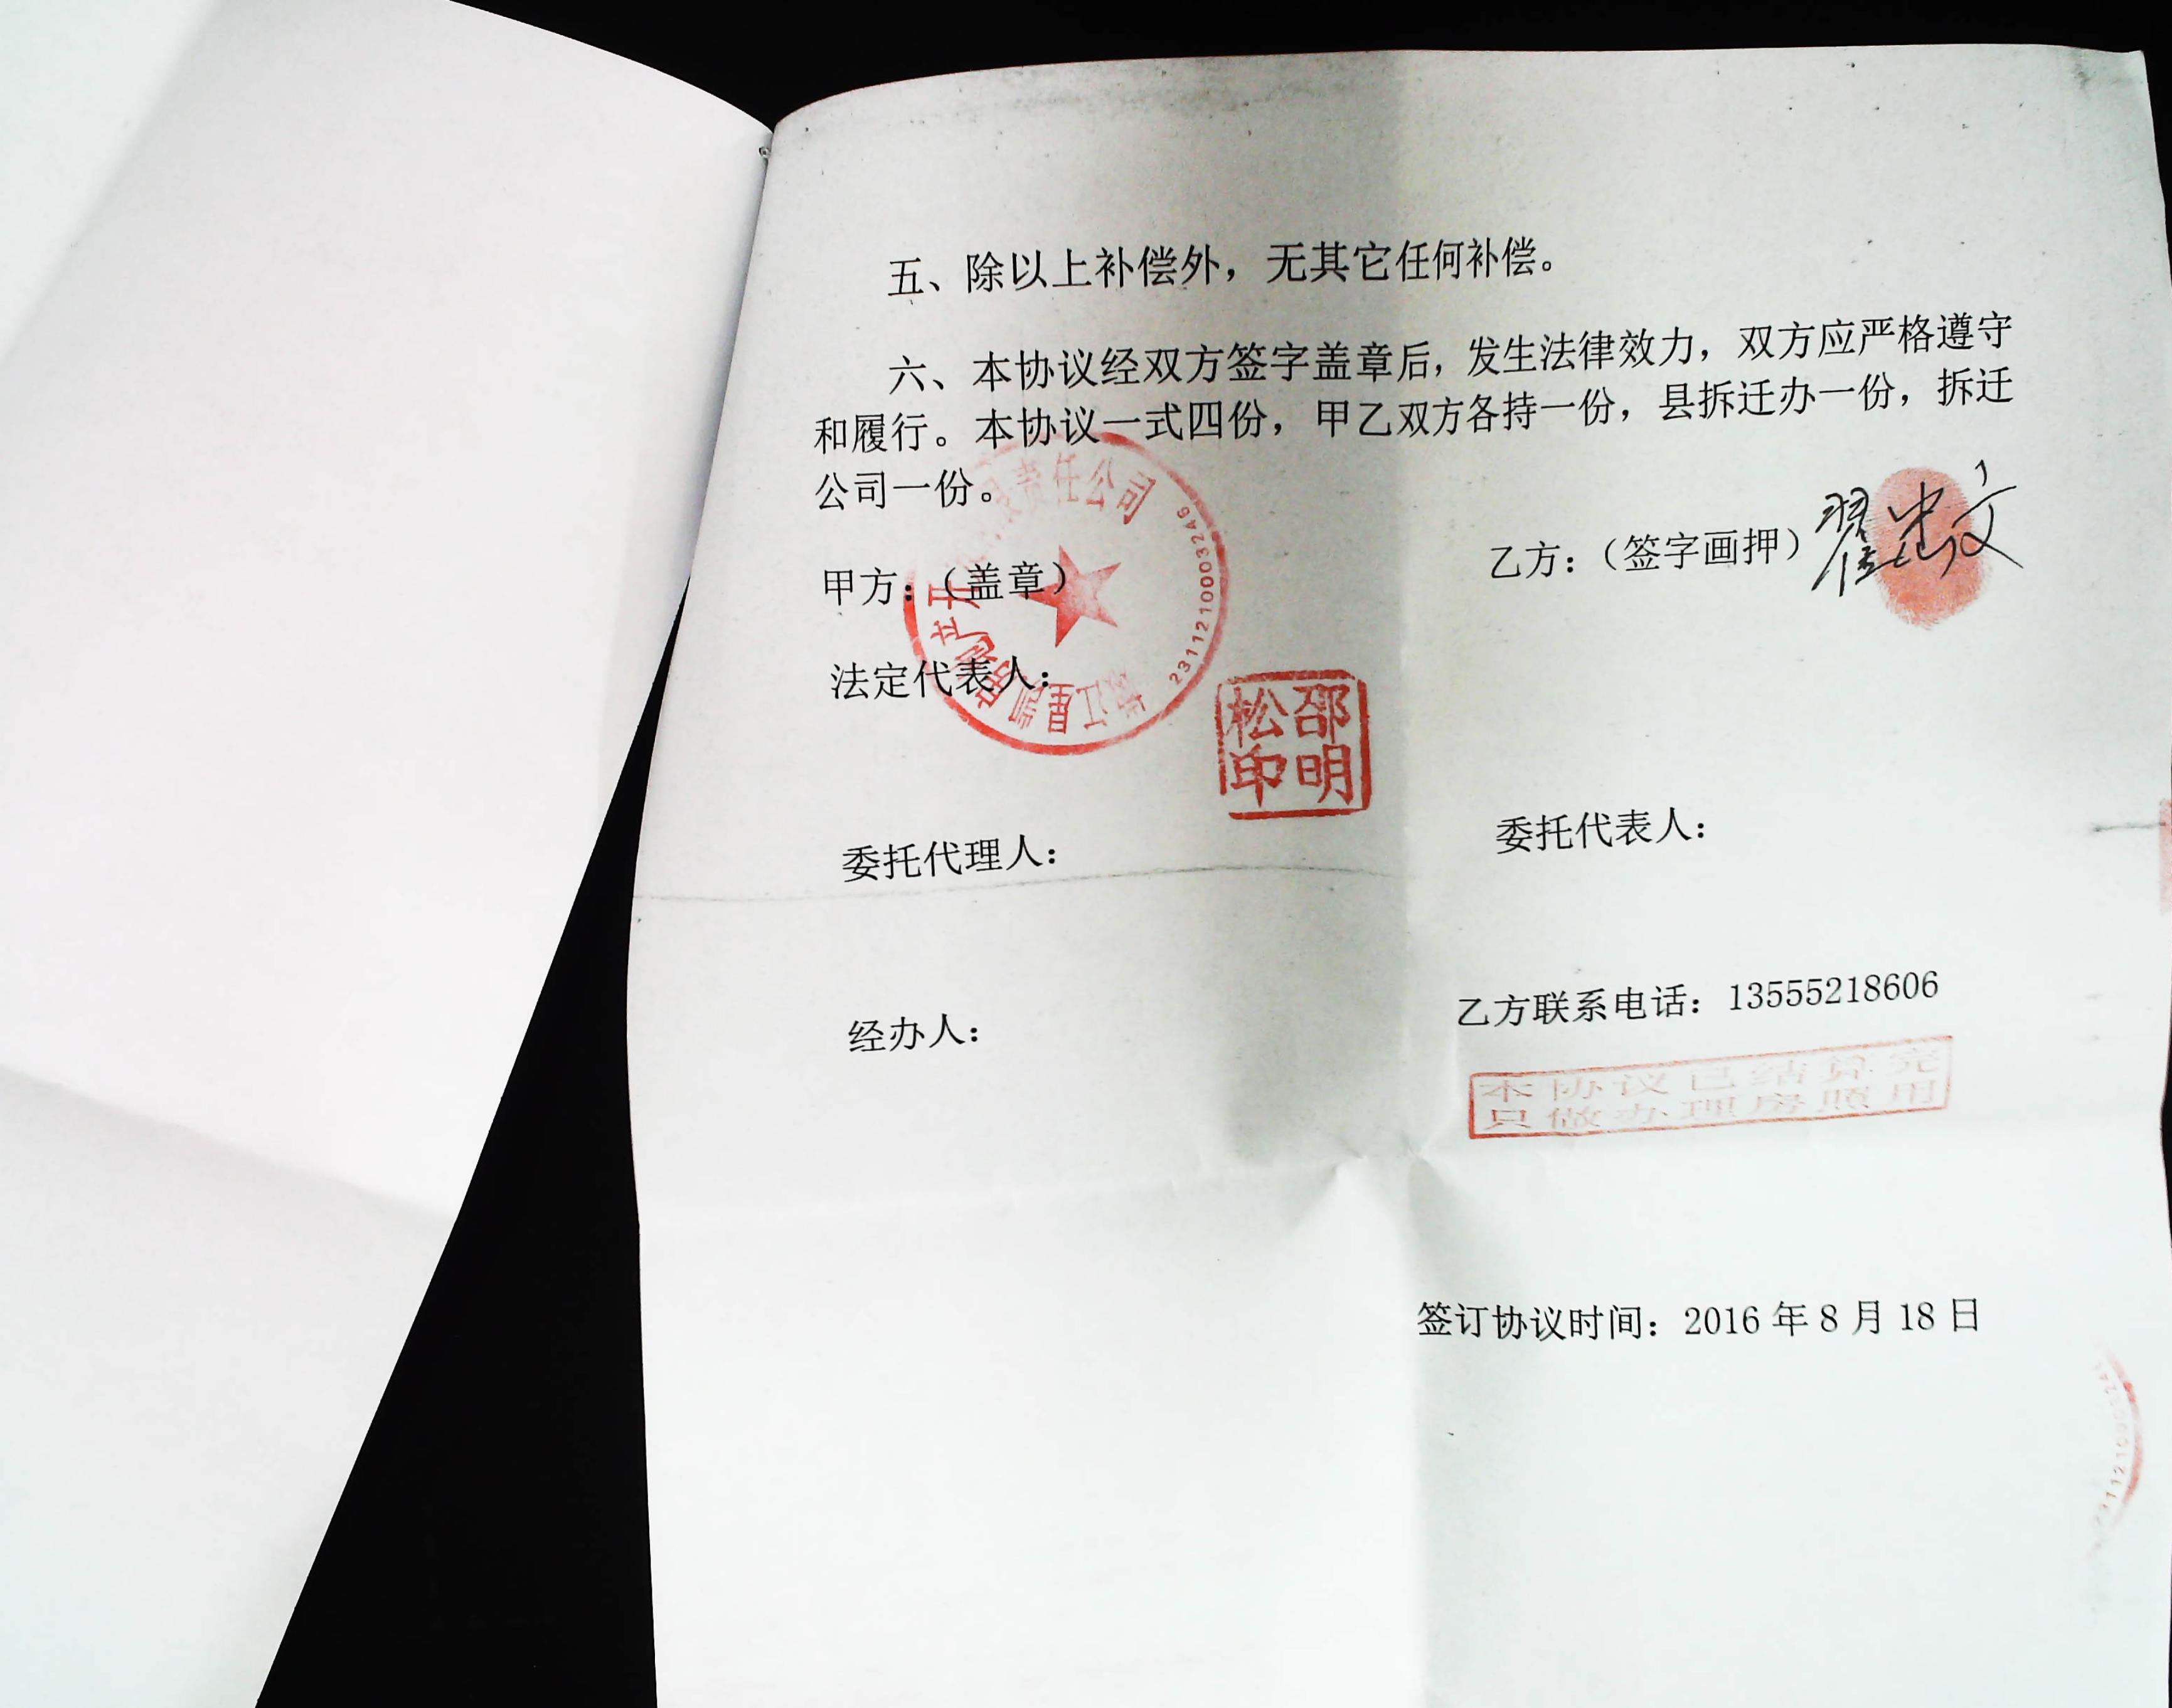 五、除以上补偿外，无其它任何补偿。
六、本协议经双方签字盖章后，发生法律效力，双方应严格遵守
和履行。本协议一式四份，甲乙双方各持一份，县拆迁办一份，拆迁
公司一份。
甲方：（盖章）
乙方：（签字画押）翟忠文
责任公司
2311210003246
法定代表人：
邵明
松印
委托代理人：
委托代表人：
经办人：
乙方联系电话：13555218606
本协议已结算完
只做办理房照用
签订协议时间：2016 年 8 月 18 日